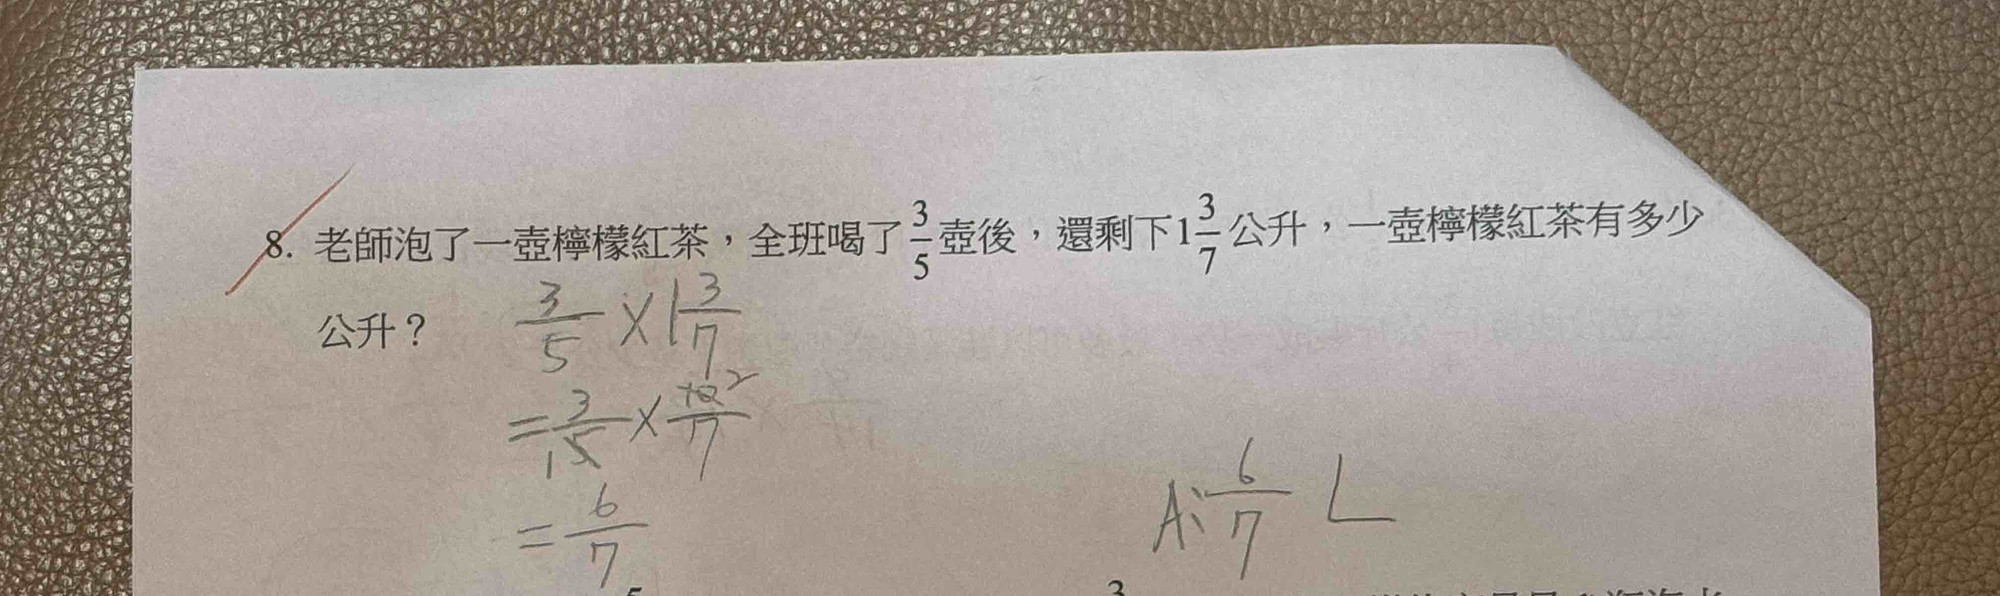 8. 老師泡了一壺檸檬紅茶，全班喝了3/5壺後，還剩下1 3/7公升，一壺檸檬紅茶有多少
公升？
3/5 × 1 3/7
= 3/5 1 × 10/7 2
= 6/7
A: 6/7 L